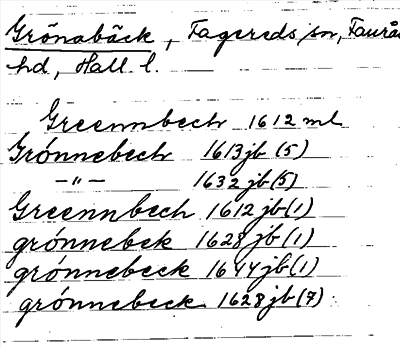 Grönabäck, Fagereds sn, Faurås
hd, Hall. l.
Greennbech 1612 ml
Grónnebech 1613 jb (5)
—"— 1632 jb (5)
Greennbech 1612 jb (1)
grónnebek 1628 jb (1)
grónnebeck 1644 jb (1)
grónnebeck 1628 jb (7)